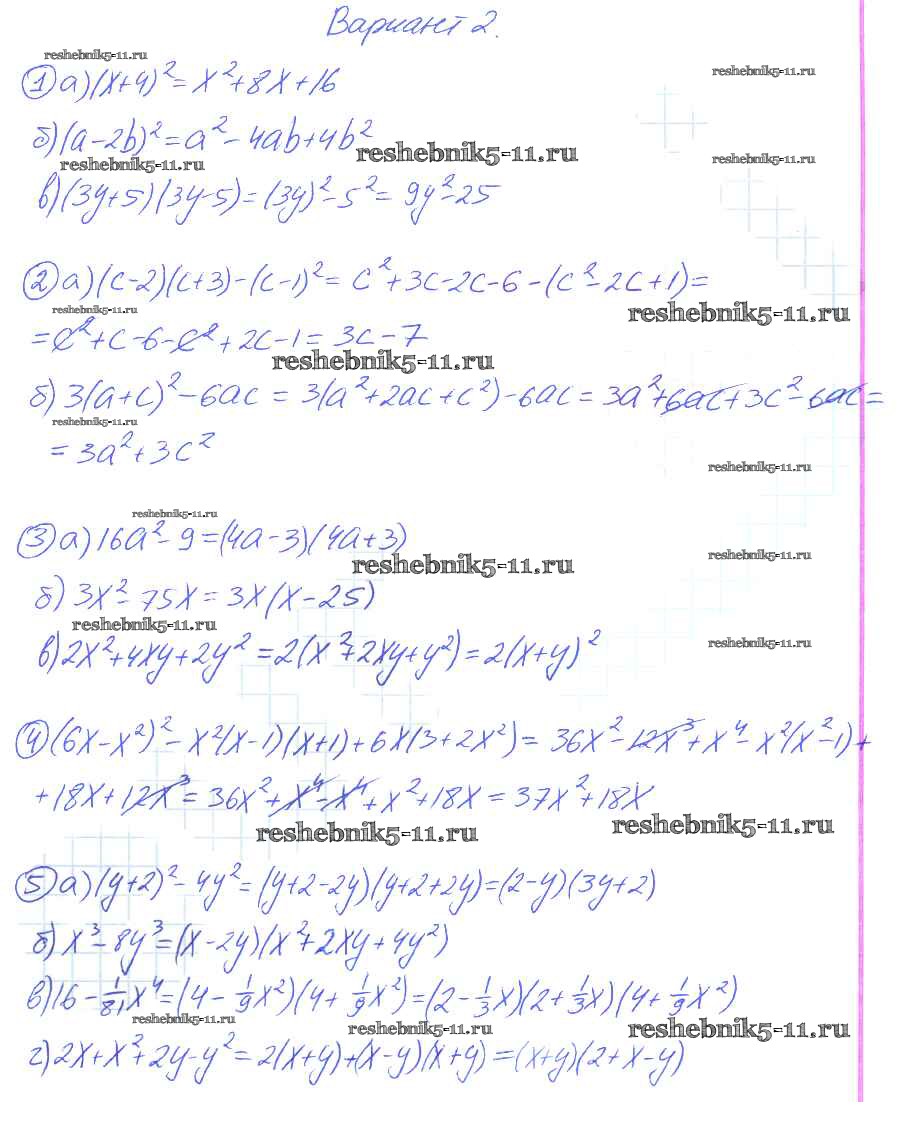 Вариант 2.
reshebnik5-11.ru
① а) (x+4)² = x²+8x+16
reshebnik5-11.ru
б) (a-2b)² = a² - 4ab+4b²
reshebnik5-11.ru
reshebnik5-11.ru
reshebnik5-11.ru
в) (3y+5)(3y-5) = (3y)² - 5² = 9y² - 25
② а) (c-2)(c+3) - (c-1)² = c² + 3c - 2c - 6 - (c² - 2c + 1) =
reshebnik5-11.ru
reshebnik5-11.ru
= c² + c - 6 - c² + 2c - 1 = 3c - 7
reshebnik5-11.ru
б) 3(a+c)² - 6ac = 3(a²+2ac+c²) - 6ac = 3a²+6ac+3c² - 6ac =
reshebnik5-11.ru
= 3a² + 3c²
reshebnik5-11.ru
reshebnik5-11.ru
③ а) 16a² - 9 = (4a-3)(4a+3)
reshebnik5-11.ru
reshebnik5-11.ru
б) 3x² - 75x = 3x(x-25)
reshebnik5-11.ru
в) 2x²+4xy+2y² = 2(x²+2xy+y²) = 2(x+y)²
reshebnik5-11.ru
④ (6x-x²)² - x²(x-1)(x+1) + 6x(3+2x²) = 36x² - 12x³ + x⁴ - x²(x²-1) +
+ 18x + 12x³ = 36x² + x⁴ - x⁴ + x² + 18x = 37x² + 18x
reshebnik5-11.ru
reshebnik5-11.ru
⑤ а) (y+2)² - 4y² = (y+2-2y)(y+2+2y) = (2-y)(3y+2)
б) x³ - 8y³ = (x-2y)(x²+2xy+4y²)
в) 16 - 1/81 x⁴ = (4 - 1/9 x²)(4 + 1/9 x²) = (2 - 1/3 x)(2 + 1/3 x)(4 + 1/9 x²)
reshebnik5-11.ru
reshebnik5-11.ru
reshebnik5-11.ru
г) 2x + x² + 2y - y² = 2(x+y) + (x-y)(x+y) = (x+y)(2+x-y)